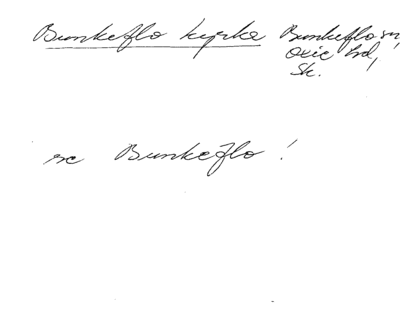 Bunkeflo kyrka Bunkeflo sn,
Oxie hd,
Sk.
se Bunkeflo!